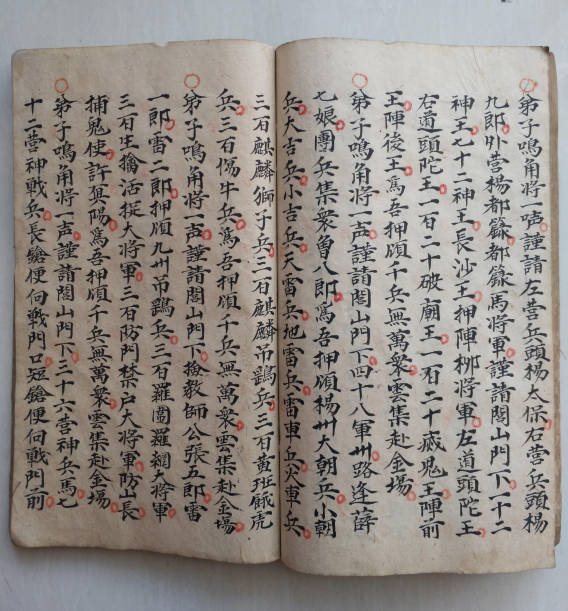 弟子鳴角將一声謹請左营兵頭楊太保右营兵頭楊
九郎外营楊都籙都籙馬將軍謹請閭山門下一十二
神王七十二神王長沙王押陣柳將軍左道頭陀王
右道頭陀王一百二十破廟王一百二十瘟鬼王陣前
王陣後王爲吾押領千兵無萬衆雲集赴金場
弟子鳴角將一声謹請閭山門下四十八軍州路逢薛
七娘團兵集衆詹八郎爲吾押領楊州大朝兵小朝
兵大吉兵小吉兵天雷兵地雷兵雷車兵火車兵
三百麒麟獅子兵三百麒麟吊鷄兵三百黃班餓虎
兵三百惕牛兵爲吾押領千兵無萬衆雲集赴金場
弟子鳴角將一声謹請閭山門下檢教師公張五郎雷
一郎雷二郎押領九州吊鷄兵三百羅圍羅網大將軍
三百生擒活捉大將軍三百防門禁戶大將軍防山長
捕鬼使許真陽爲吾押領千兵無萬衆雲集赴金場
弟子鳴角將一声謹請閭山門下三十六营神兵馬七
十二营神戰兵長鎗便向戰門口短鎗便向戰門前